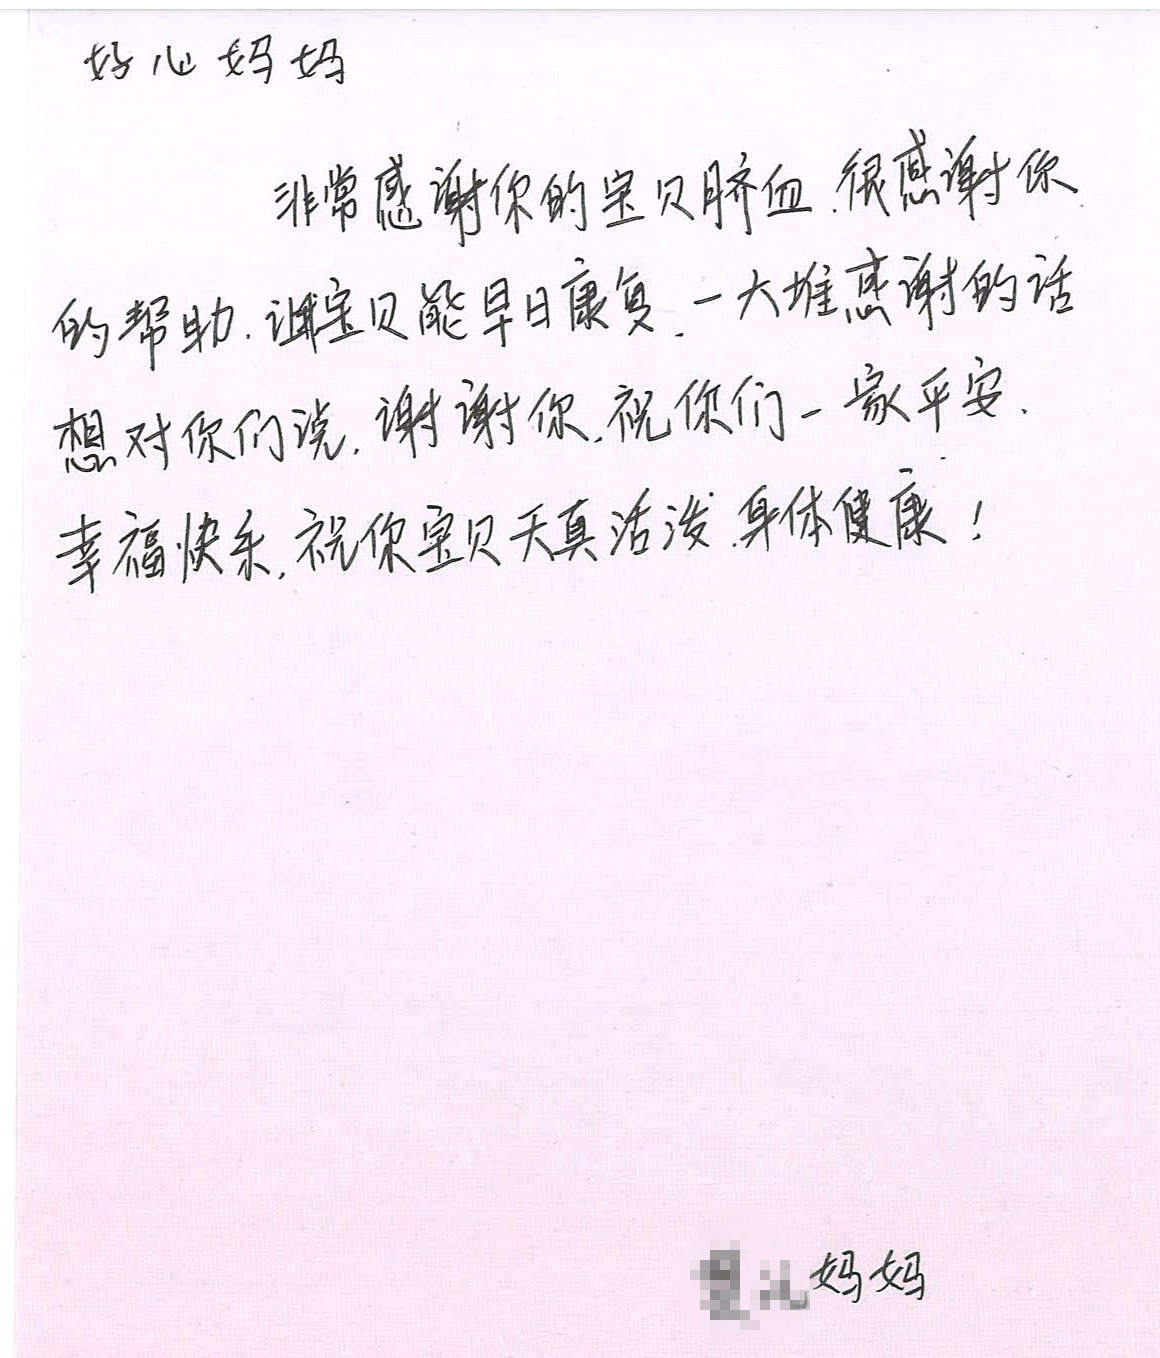 好心妈妈
非常感谢你的宝贝脐血.很感谢你
的帮助.让宝贝能早日康复.一大堆感谢的话
想对你们说.谢谢你.祝你们一家平安.
幸福快乐.祝你宝贝天真活泼.身体健康!
妈妈